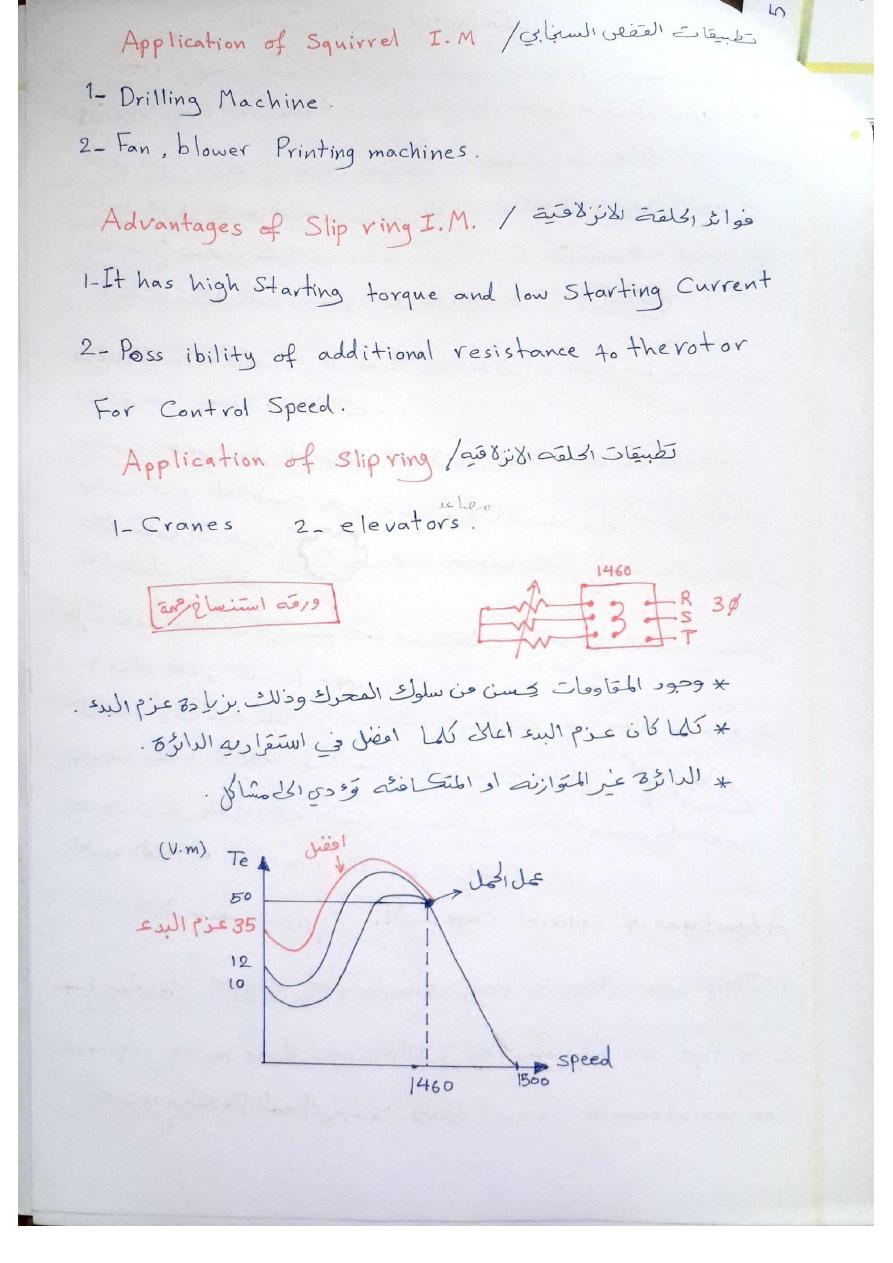 5
Application of Squirrel I.M / تطبيقات القفص السنجابي
1- Drilling Machine.
2- Fan, blower Printing machines.
Advantages of Slip ring I.M. / فوائد الحلقة الانزلاقية
1-It has high Starting torque and low Starting Current
2- Poss ibility of additional resistance to the rotor
For Control Speed.
Application of Slip ring / تطبيقات الحلقه الانزلاقيه
مصاعد
1- Cranes 2- elevators.
1460
ورقه استنساخ مهمة
R
S
T
3ϕ
* وجود المقاومات يحسن من سلوك المحرك وذلك بزيادة عزم البدء.
* كلما كان عزم البدء اعلى كلما افضل في استقراريه الدائرة.
* الدائرة غير المتوازنه او المتكافئه تؤدي الى مشاكل.
(V.m) Te
افضل
عمل الحمل
50
35 عزم البدء
12
10
speed
1460
1500